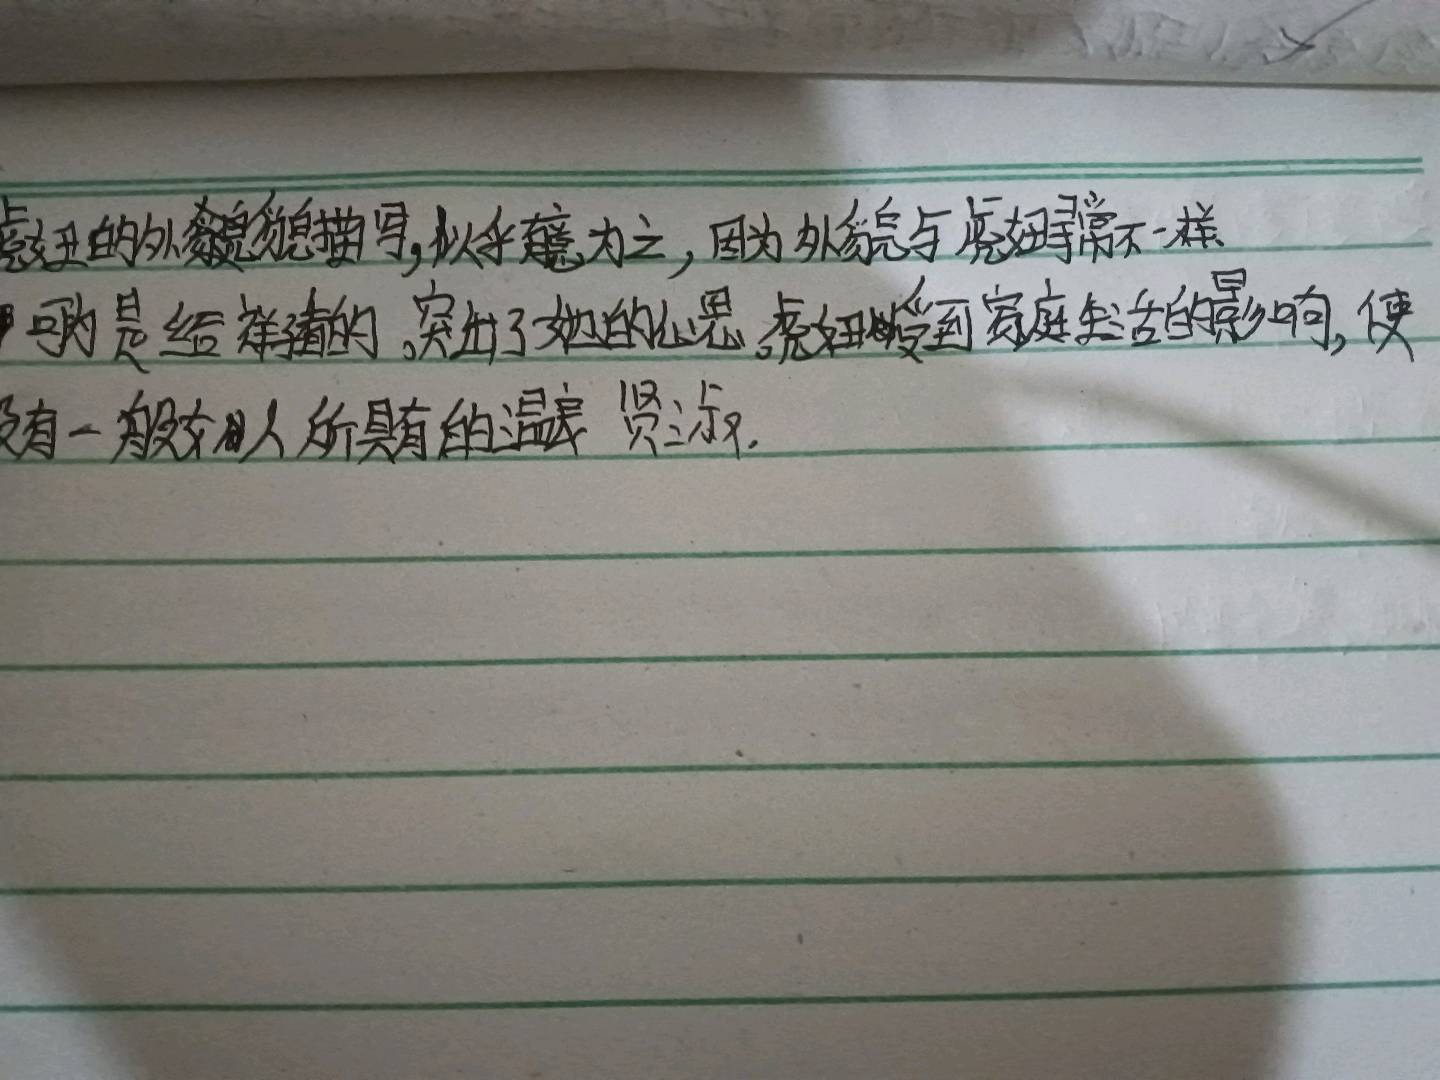 虎妞的外貌描写,似乎有意为之,因为外貌与虎妞平常不一样
是给祥子看的。突出了她的心思。虎妞受到家庭生活的影响,使
没有一般女人所具有的温柔 贤淑.